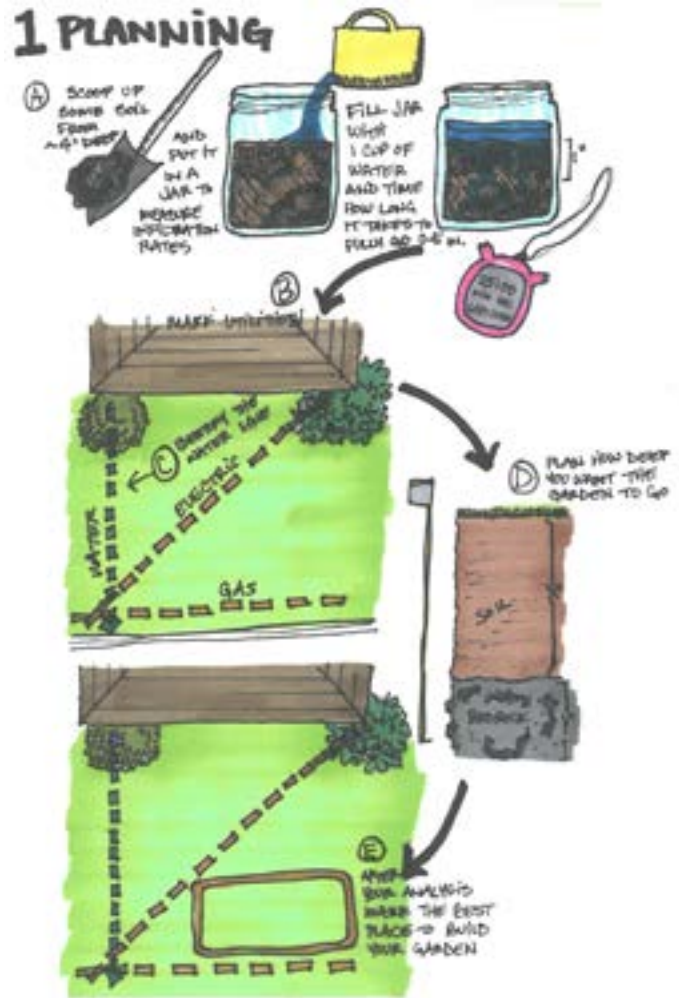 1 PLANNING
A SCOOP UP
SOME SOIL
FROM
~4" DEEP
AND
PUT IT
IN A
JAR TO
MEASURE
INFILTRATION
RATES
FILL JAR
WITH
1 CUP OF
WATER
AND TIME
HOW LONG
IT TAKES TO
FULLY GO
B
MARK UTILITIES!
C
WATER LINE
WATER
ELECTRIC
GAS
D PLAN HOW DEEP
YOU WANT THE
GARDEN TO GO
SOIL
BEDROCK
E
AFTER
YOUR ANALYSIS
MARK THE BEST
PLACE TO BUILD
YOUR GARDEN